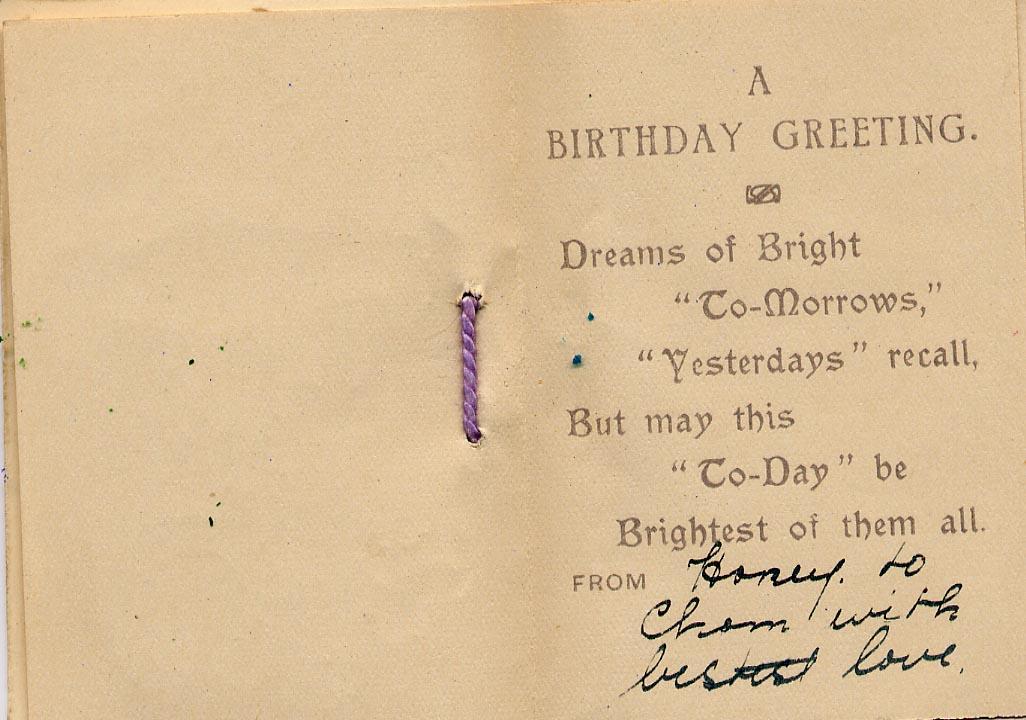 A
BIRTHDAY GREETING.
Dreams of Bright
"To-Morrows,"
"Yesterdays" recall,
But may this
"To-Day" be
Brightest of them all.
FROM Honey. to
Chom with
best love.